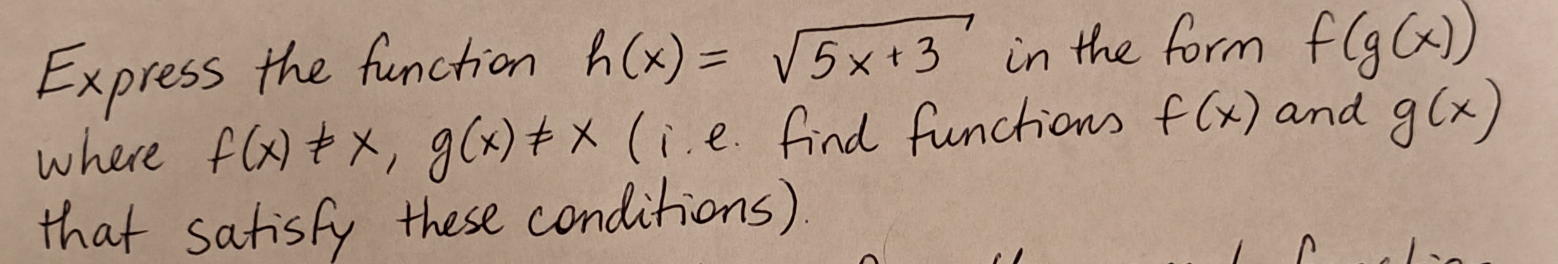 Express the function h(x) = √(5x+3) in the form f(g(x))
where f(x) ≠ x, g(x) ≠ x (i.e. find functions f(x) and g(x)
that satisfy these conditions).